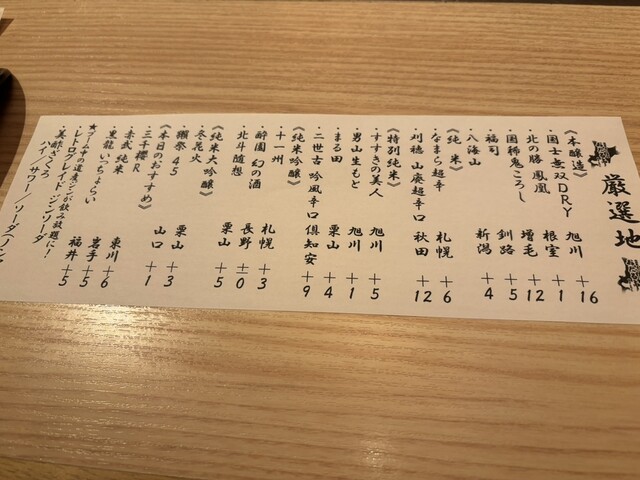 厳選地
《本醸造》
・国士無双DRY 旭川 +16
・北の勝 鳳凰 根室 +1
・国稀 鬼ころし 増毛 +12
・福司 釧路 +5
・八海山 新潟 +4
《純米》
・なまら超辛 札幌 +6
・刈穂 山廃超辛口 秋田 +12
《特別純米》
・すすきの美人 旭川 +5
・男山生もと 旭川 +1
・まる田 栗山 +4
・二世古 吟風辛口 倶知安 +9
《純米吟醸》
・十一州 札幌 +3
・酔園 幻の酒 長野 ±0
・北斗随想 栗山 +5
《純米大吟醸》
・冬花火 栗山 +3
・獺祭 45 山口 +1
《本日のおすすめ》
・三千櫻R 東川 +6
・赤武 純米 岩手 +5
・黒龍 いっちょらい 福井 +5
★ブーム中の道産ジンが飲み放題に!
・レトログレイド ジンソーダ
・美酢ざくろ
ハイ/サワー/ソーダ(ノンア